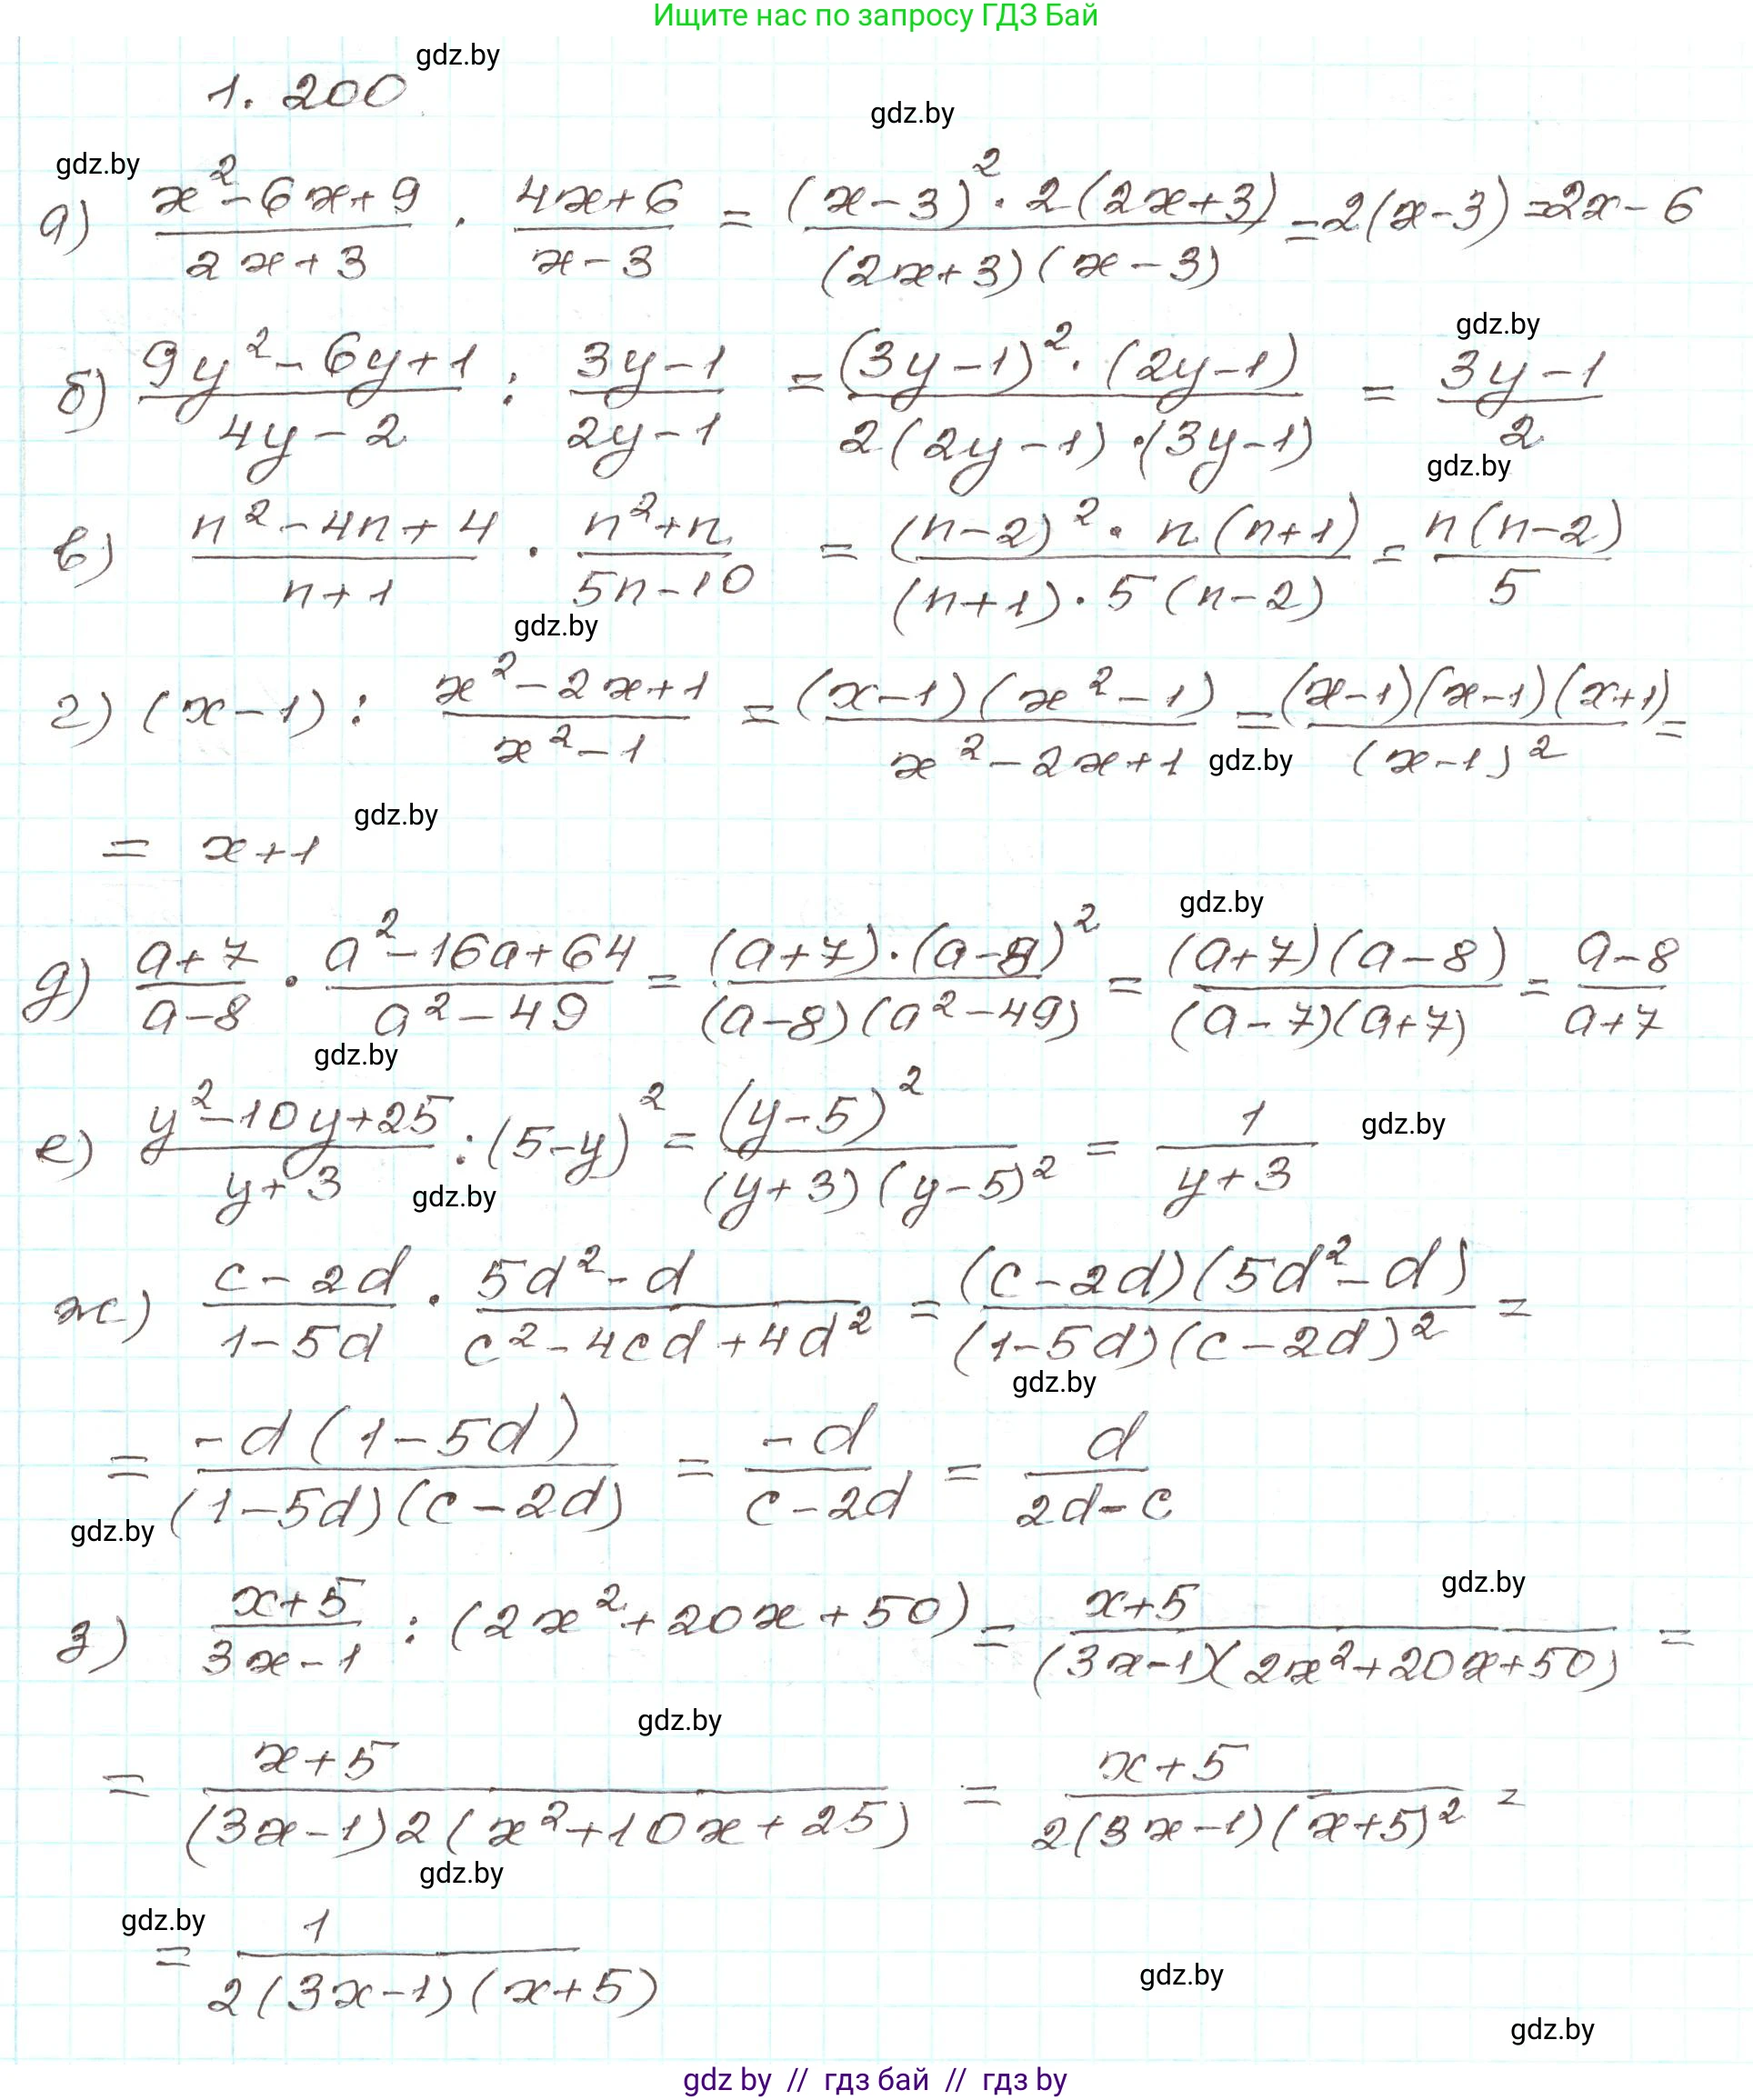 Ищите нас по запросу ГДЗ Бай
gdz.by
1. 200
gdz.by
gdz.by
а) (x²-6x+9)/(2x+3) · (4x+6)/(x-3) = ((x-3)² · 2(2x+3))/((2x+3)(x-3)) = 2(x-3) = 2x-6
gdz.by
б) (9y²-6y+1)/(4y-2) : (3y-1)/(2y-1) = ((3y-1)² · (2y-1))/(2(2y-1) · (3y-1)) = (3y-1)/2
gdz.by
в) (n²-4n+4)/(n+1) · (n²+n)/(5n-10) = ((n-2)² · n(n+1))/((n+1) · 5(n-2)) = (n(n-2))/5
gdz.by
г) (x-1) : (x²-2x+1)/(x²-1) = ((x-1)(x²-1))/(x²-2x+1) = ((x-1)(x-1)(x+1))/(x-1)² =
gdz.by
gdz.by
= x+1
gdz.by
д) (a+7)/(a-8) · (a²-16a+64)/(a²-49) = ((a+7) · (a-8)²)/((a-8)(a²-49)) = ((a+7)(a-8))/((a-7)(a+7)) = (a-8)/(a+7)
gdz.by
е) (y²-10y+25)/(y+3) : (5-y)² = (y-5)²/((y+3)(y-5)²) = 1/(y+3)
gdz.by
gdz.by
ж) (c-2d)/(1-5d) · (5d²-d)/(c²-4cd+4d²) = ((c-2d)(5d²-d))/((1-5d)(c-2d)²) =
gdz.by
= (-d(1-5d))/((1-5d)(c-2d)) = (-d)/(c-2d) = d/(2d-c)
gdz.by
gdz.by
з) (x+5)/(3x-1) : (2x²+20x+50) = (x+5)/((3x-1)(2x²+20x+50)) =
gdz.by
= (x+5)/((3x-1)2(x²+10x+25)) = (x+5)/(2(3x-1)(x+5)²) =
gdz.by
gdz.by
= 1/(2(3x-1)(x+5))
gdz.by
gdz.by
gdz by // гдз бай // гдз by